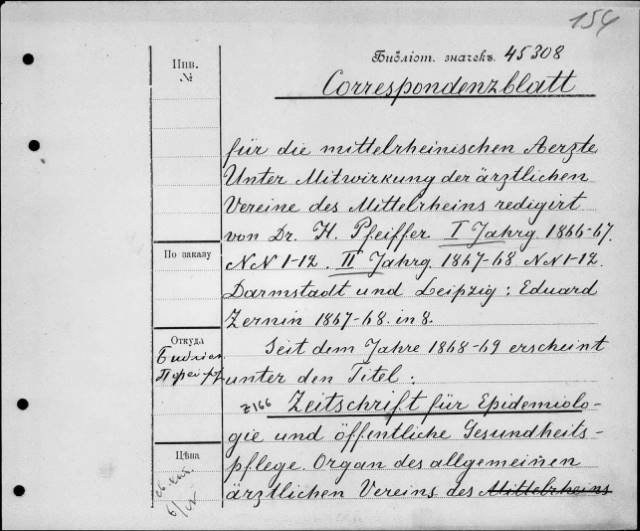 154
Библіот. значекъ 45308
Инв.
№
Correspondenzblatt
für die mittelrheinischen Aerzte
Unter Mitwirkung der ärztlichen
Vereine des Mittelrheins redigirt
von Dr. H. Pfeiffer I Jahrg. 1866-67.
NN 1-12. II Jahrg. 1867-68 NN 1-12.
По заказу
Darmstadt und Leipzig: Eduard
Zernin 1867-68. in 8.
Откуда
Seit dem Jahre 1868-69 erscheint
unter den Titel:
Z166 Zeitschrift für Epidemiolo-
gie und öffentliche Gesundheits-
Цѣна
pflege. Organ des allgemeinen
ärztlichen Vereins des Mittelrheins